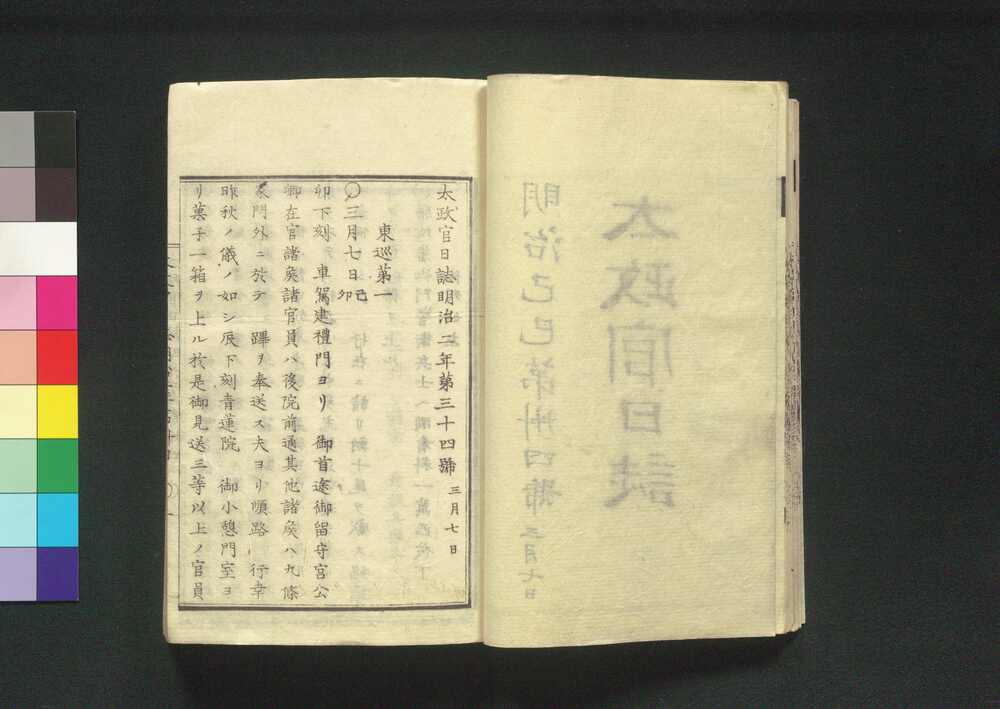 太政官日誌明治二年第三十四號 三月七日
東巡第一
○三月七日己卯
卯下刻 車駕建禮門ヨリ 御首途御留守宮公
卿在官諸矦諸官員ハ後院前通其他諸矦ハ九條
家門外ニ於テ 蹕ヲ奉送ス夫ヨリ順路 行幸
昨秋ノ儀ノ如シ辰下刻青蓮院 御小憩門室ヨ
リ菓子一箱ヲ上ル於是御見送三等以上ノ官員
太政官日誌
明治己巳第卅四號 三月七日